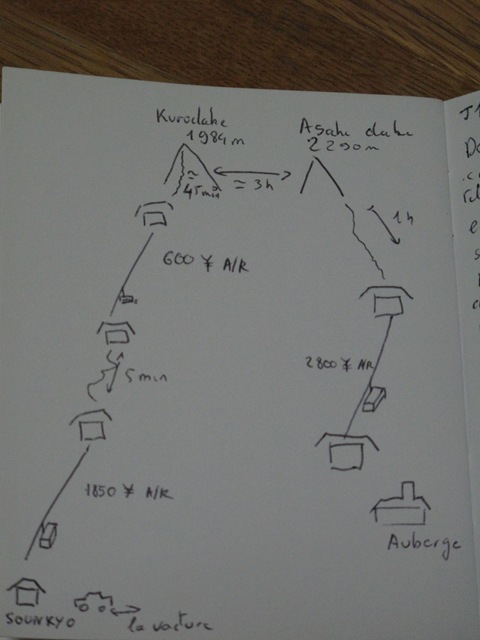 Kurodake
1984m
Asahi dake
2290m
≃
45min
≃ 3h
1h
600 ¥ A/R
5 min
2800 ¥ A/R
1850 ¥ A/R
Auberge
SOUNKYO
la voiture